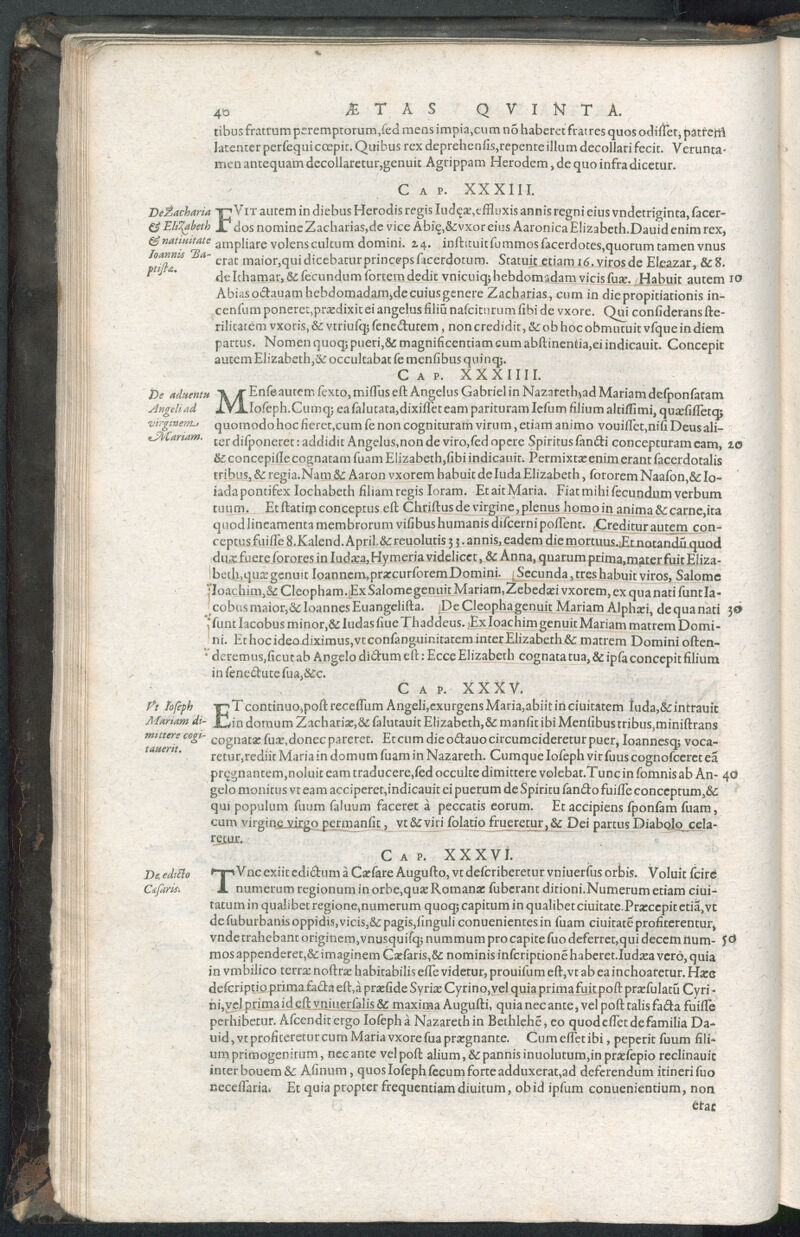 40 ÆTAS QVINTA.
tibus fratrum peremptorum, sed mens impia, cum nō haberet fratres quos odisset, patrem
latenter persequi cœpit. Quibus rex deprehensis, repente illum decollari fecit. Verunta-
men antequam decollaretur, genuit Agrippam Herodem, de quo infra dicetur.
CAP. XXXIII.
De Zacharia
& Elizabeth
& natiuitate
Ioannis Ba-
ptistæ.
FVIT autem in diebus Herodis regis Iudęæ, effluxis annis regni eius vndetriginta, sacer-
dos nomine Zacharias, de vice Abię, & vxor eius Aaronica Elizabeth. Dauid enim rex,
ampliare volens cultum domini. 24. instituit summos sacerdotes, quorum tamen vnus
erat maior, qui dicebatur princeps sacerdotum. Statuit etiam 16. viros de Eleazar, & 8.
de Ithamar, & secundum sortem dedit vnicuiq; hebdomadam vicis suæ. Habuit autem 10
Abias octauam hebdomadam, de cuius genere Zacharias, cum in die propitiationis in-
censum poneret, prædixit ei angelus filiū nasciturum sibi de vxore. Qui considerans ste-
rilitatem vxoris, & vtriusq; senectutem, non credidit, & ob hoc obmutuit vsque in diem
partus. Nomen quoq; pueri, & magnificentiam cum abstinentia, ei indicauit. Concepit
autem Elizabeth, & occultabat se mensibus quinq;.
CAP. XXXIIII.
De aduentu
Angeli ad
virginem
Mariam.
MEnse autem sexto, missus est Angelus Gabriel in Nazareth, ad Mariam desponsatam
Ioseph. Cumq; ea salutata, dixisset eam parituram Iesum filium altissimi, quæsissetq;
quomodo hoc fieret, cum se non cognituram virum, etiam animo vouisset, nisi Deus ali-
ter disponeret: addidit Angelus, non de viro, sed opere Spiritus sancti concepturam eam, 20
& concepisse cognatam suam Elizabeth, sibi indicauit. Permixtæ enim erant sacerdotalis
tribus, & regia. Nam & Aaron vxorem habuit de Iuda Elizabeth, sororem Naason, & Io-
iada pontifex Iochabeth filiam regis Ioram. Et ait Maria. Fiat mihi secundum verbum
tuum. Et statim conceptus est Christus de virgine, plenus homo in anima & carne, ita
quod lineamenta membrorum visibus humanis discerni possent. Creditur autem con-
ceptus fuisse 8. Kalend. April. & reuolutis 33. annis, eadem die mortuus. Et notandū quod
duæ fuere sorores in Iudæa, Hymeria videlicet, & Anna, quarum prima, mater fuit Eliza-
beth, quæ genuit Ioannem, præcursorem Domini. Secunda, tres habuit viros, Salome
Ioachim, & Cleopham. Ex Salome genuit Mariam, Zebedæi vxorem, ex qua nati sunt Ia-
cobus maior, & Ioannes Euangelista. De Cleopha genuit Mariam Alphæi, de qua nati 30
sunt Iacobus minor, & Iudas siue Thaddeus. Ex Ioachim genuit Mariam matrem Domi-
ni. Et hoc ideo diximus, vt consanguinitatem inter Elizabeth & matrem Domini osten-
deremus, sicut ab Angelo dictum est: Ecce Elizabeth cognata tua, & ipsa concepit filium
in senectute sua, &c.
CAP. XXXV.
Vt Ioseph
Mariam di-
mittere cogi-
tauerit.
ET continuo, post recessum Angeli, exurgens Maria, abiit in ciuitatem Iuda, & intrauit
in domum Zachariæ, & salutauit Elizabeth, & mansit ibi Mensibus tribus, ministrans
cognatæ suæ, donec pareret. Et cum die octauo circumcideretur puer, Ioannesq; voca-
retur, rediit Maria in domum suam in Nazareth. Cumque Ioseph vir suus cognosceret eā
pręgnantem, noluit eam traducere, sed occulte dimittere volebat. Tunc in somnis ab An- 40
gelo monitus vt eam acciperet, indicauit ei puerum de Spiritu sancto fuisse conceptum, &
qui populum suum saluum faceret à peccatis eorum. Et accipiens sponsam suam,
cum virgine virgo permansit, vt & viri solatio frueretur, & Dei partus Diabolo cela-
retur.
CAP. XXXVI.
De edicto
Cæsaris.
TVnc exiit edictum à Cæsare Augusto, vt describeretur vniuersus orbis. Voluit scire
numerum regionum in orbe, quæ Romanæ suberant ditioni. Numerum etiam ciui-
tatum in qualibet regione, numerum quoq; capitum in qualibet ciuitate. Præcepit etiā, vt
de suburbanis oppidis, vicis, & pagis, singuli conuenientes in suam ciuitatē profiterentur,
vnde trahebant originem, vnusquisq; nummum pro capite suo deferret, qui decem num- 50
mos appenderet, & imaginem Cæsaris, & nominis inscriptionē haberet. Iudæa verò, quia
in vmbilico terræ nostræ habitabilis esse videtur, prouisum est, vt ab ea inchoaretur. Hæc
descriptio prima facta est, à præside Syriæ Cyrino, vel quia prima fuit post præsulatū Cyri-
ni, vel prima id est vniuersalis & maxima Augusti, quia nec ante, vel post talis facta fuisse
perhibetur. Ascendit ergo Ioseph à Nazareth in Bethlehē, eo quod esset de familia Da-
uid, vt profiteretur cum Maria vxore sua prægnante. Cum esset ibi, peperit suum fili-
um primogenitum, nec ante vel post alium, & pannis inuolutum, in præsepio reclinauit
inter bouem & Asinum, quos Ioseph secum forte adduxerat, ad deferendum itineri suo
necessaria. Et quia propter frequentiam diuitum, ob id ipsum conuenientium, non
erat